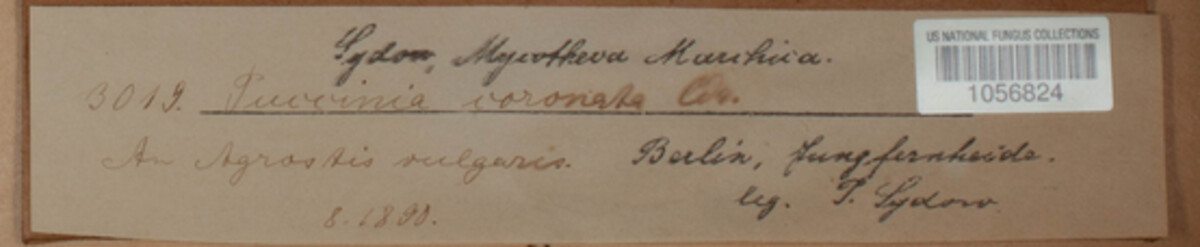 Sydow, Mycotheca Marchica.
US NATIONAL FUNGUS COLLECTIONS
1056824
3019. Puccinia coronata Cda.
An Agrostis vulgaris. Berlin, Jungfernheide.
leg. P. Sydow
8.1890.